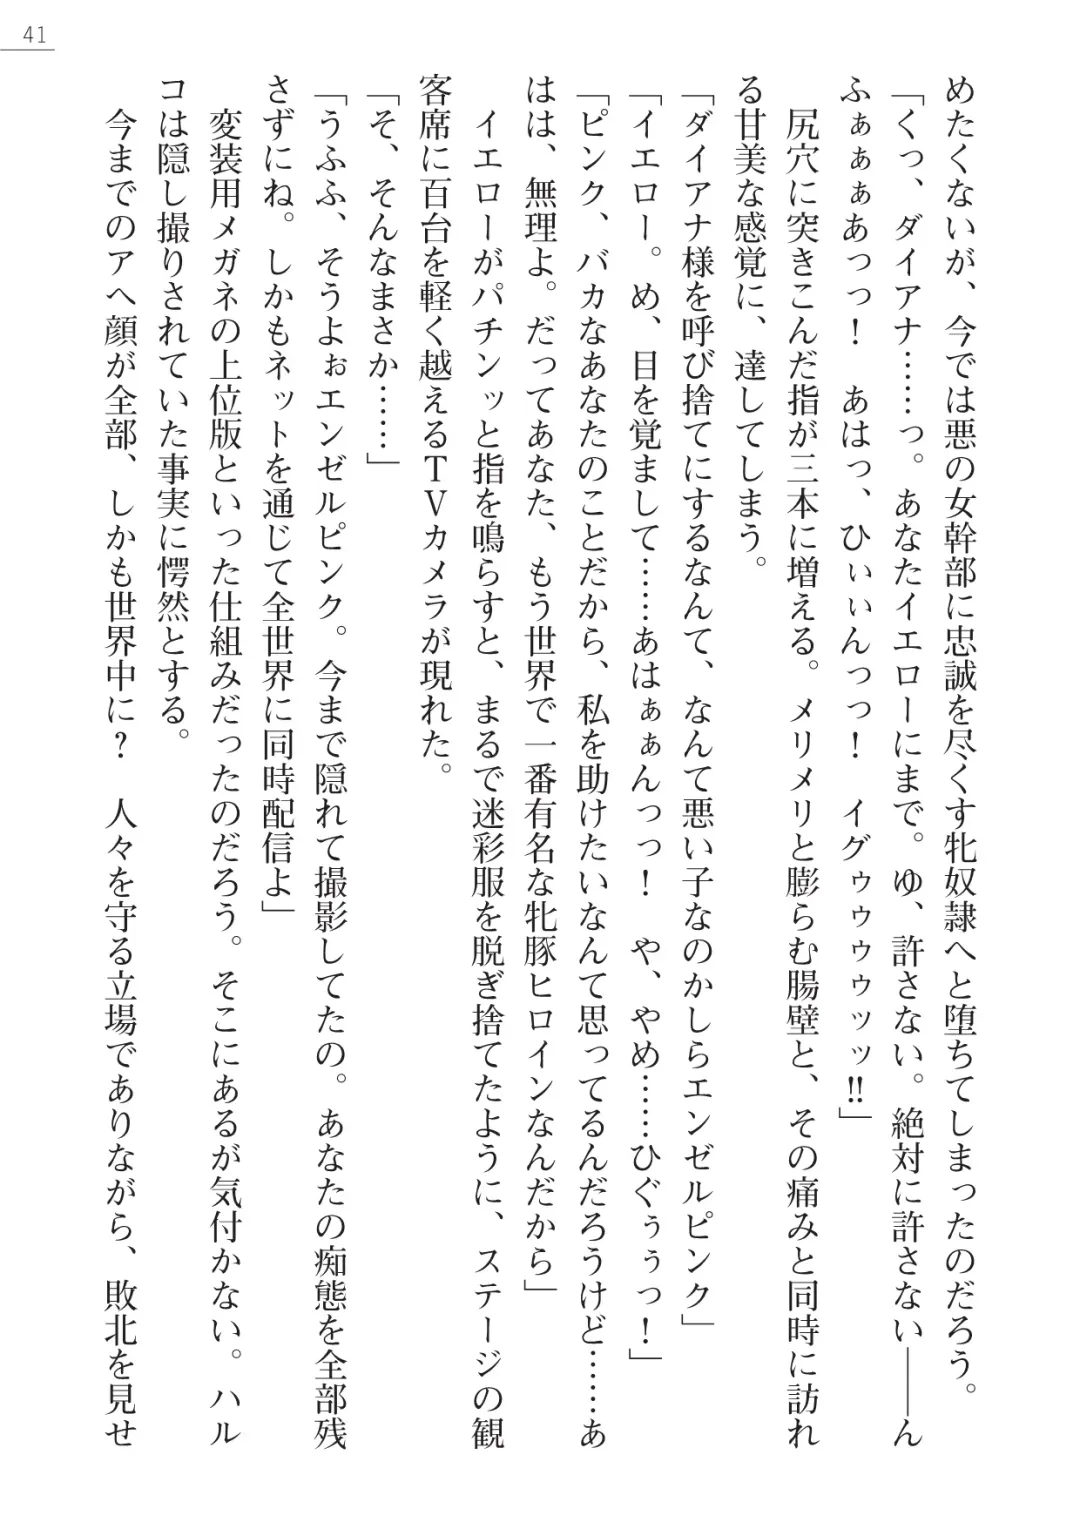 41
めたくないが、今では悪の女幹部に忠誠を尽くす牝奴隷へと堕ちてしまったのだろう。
「くっ、ダイアナ……っ。あなたイエローにまで。ゆ、許さない。絶対に許さない――ん
ふぁぁぁあっっ！　あはっ、ひぃぃんっっ！　イグゥゥゥゥッッ!!」
　尻穴に突きこんだ指が三本に増える。メリメリと膨らむ腸壁と、その痛みと同時に訪れ
る甘美な感覚に、達してしまう。
「ダイアナ様を呼び捨てにするなんて、なんて悪い子なのかしらエンゼルピンク」
「イエロー。め、目を覚まして……あはぁぁんっっ！　や、やめ……ひぐぅぅっ！」
「ピンク、バカなあなたのことだから、私を助けたいなんて思ってるんだろうけど……あ
はは、無理よ。だってあなた、もう世界で一番有名な牝豚ヒロインなんだから」
　イエローがパチンッと指を鳴らすと、まるで迷彩服を脱ぎ捨てたように、ステージの観
客席に百台を軽く越えるＴＶカメラが現れた。
「そ、そんなまさか……」
「うふふ、そうよぉエンゼルピンク。今まで隠れて撮影してたの。あなたの痴態を全部残
さずにね。しかもネットを通じて全世界に同時配信よ」
　変装用メガネの上位版といった仕組みだったのだろう。そこにあるが気付かない。ハル
コは隠し撮りされていた事実に愕然とする。
　今までのアヘ顔が全部、しかも世界中に？　人々を守る立場でありながら、敗北を見せ